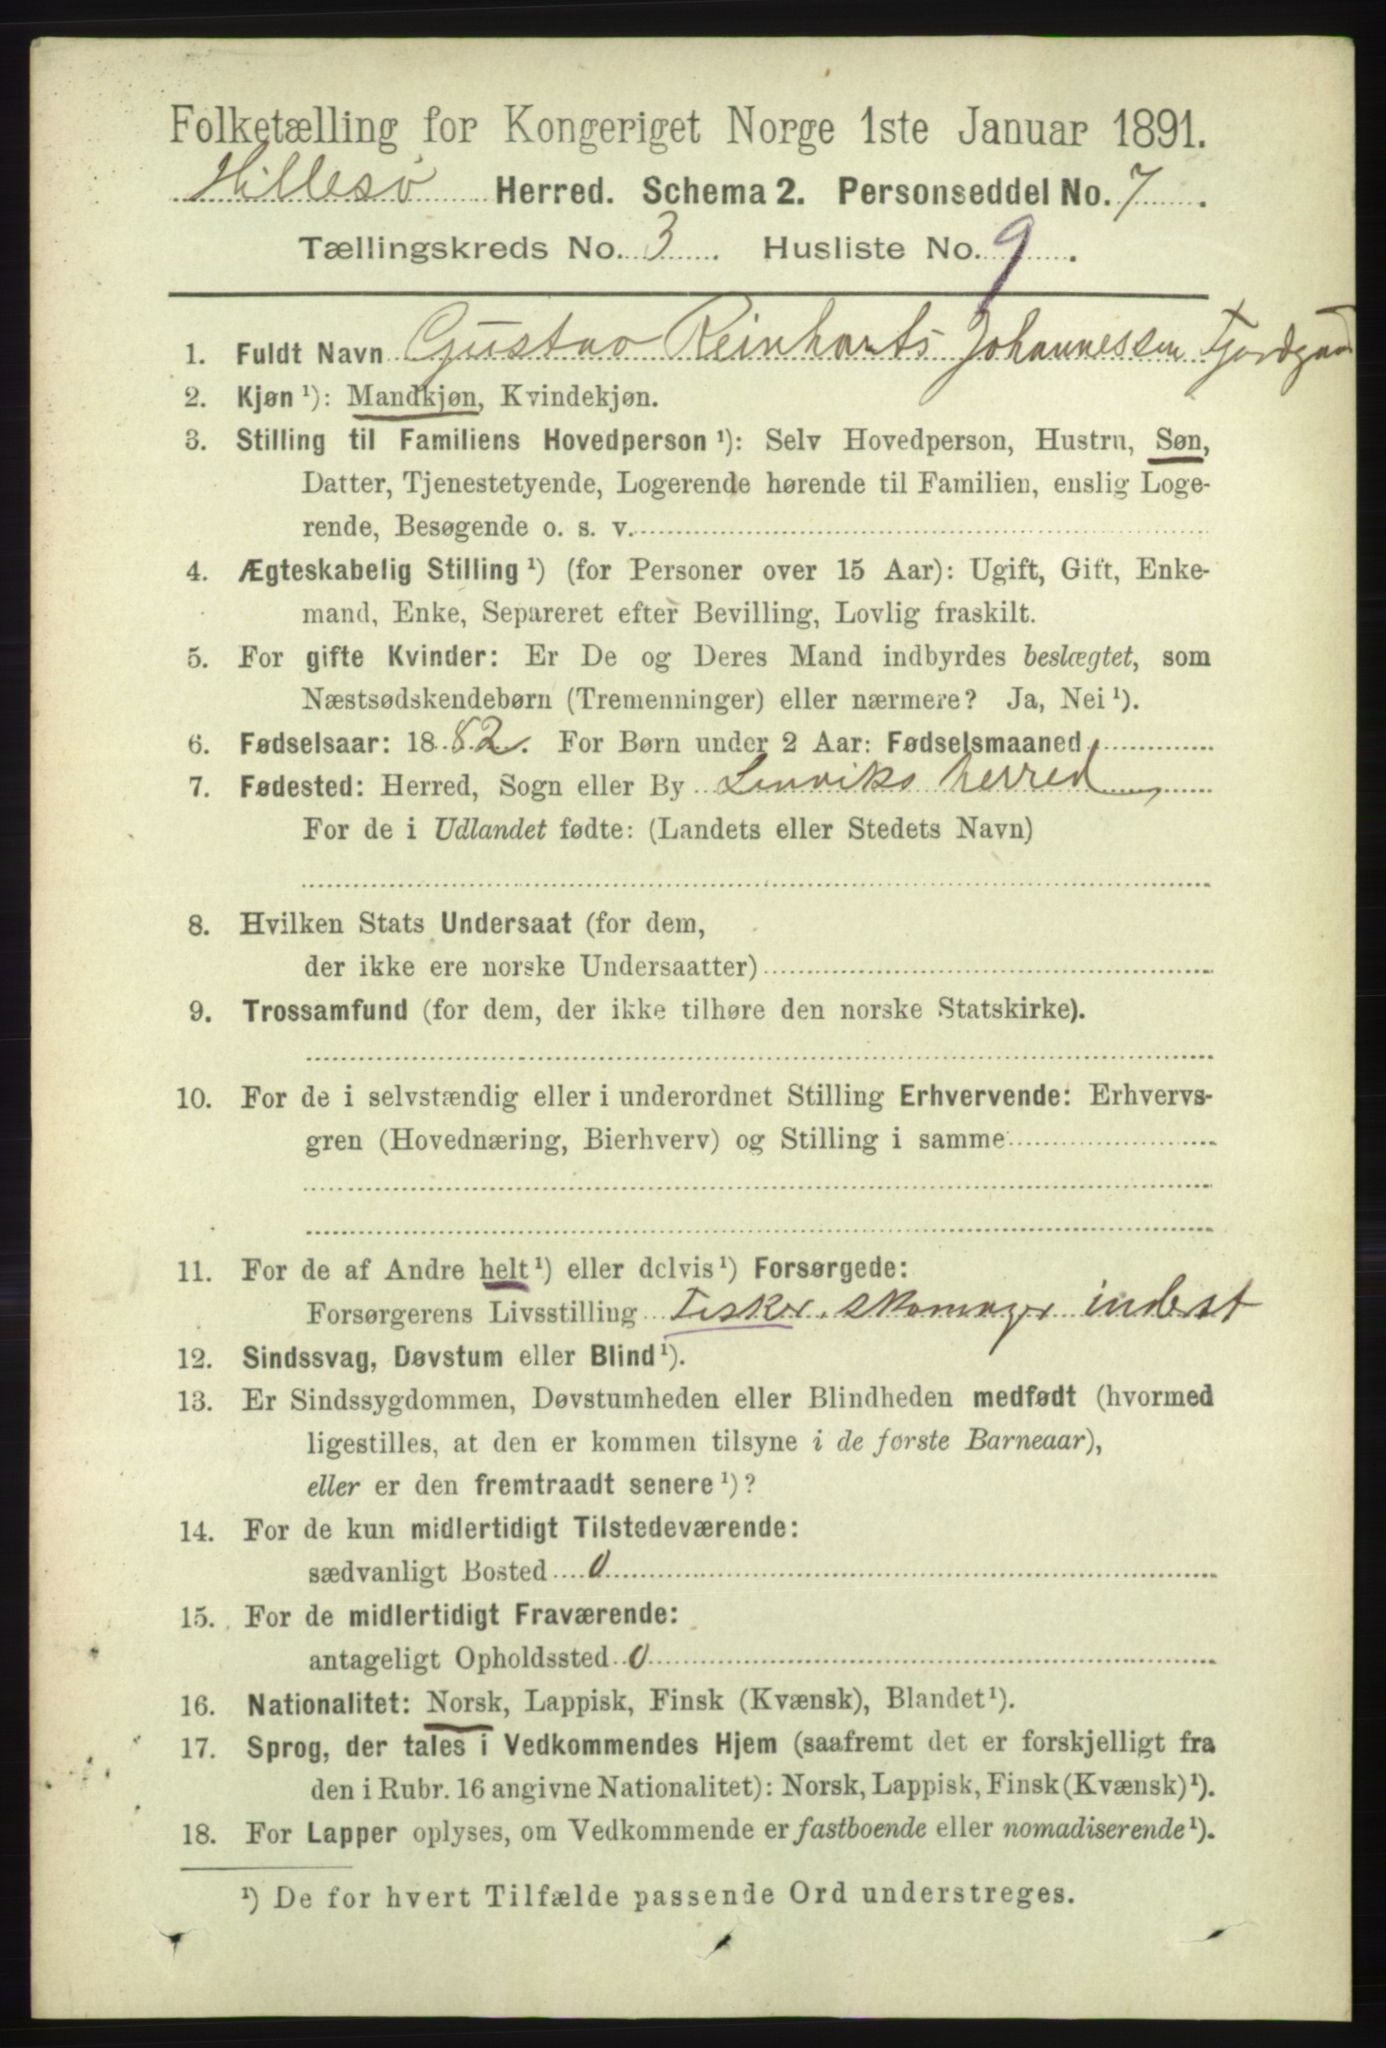 Folketælling for Kongeriget Norge 1ste Januar 1891.
Hillesø Herred. Schema 2. Personseddel No. 7.
Tællingskreds No. 3. Husliste No. 9.
1. Fuldt Navn Gustav Reinharts Johannessen Fjordgaard
2. Kjøn ¹): Mandkjøn, Kvindekjøn.
3. Stilling til Familiens Hovedperson ¹): Selv Hovedperson, Hustru, Søn,
Datter, Tjenestetyende, Logerende hørende til Familien, enslig Loge-
rende, Besøgende o. s. v.
4. Ægteskabelig Stilling ¹) (for Personer over 15 Aar): Ugift, Gift, Enke-
mand, Enke, Separeret efter Bevilling, Lovlig fraskilt.
5. For gifte Kvinder: Er De og Deres Mand indbyrdes beslægtet, som
Næstsødskendebørn (Tremenninger) eller nærmere? Ja, Nei ¹).
6. Fødselsaar: 1882. For Børn under 2 Aar: Fødselsmaaned
7. Fødested: Herred, Sogn eller By Lenviks herred
For de i Udlandet fødte: (Landets eller Stedets Navn)
8. Hvilken Stats Undersaat (for dem,
der ikke ere norske Undersaatter)
9. Trossamfund (for dem, der ikke tilhøre den norske Statskirke).
10. For de i selvstændig eller i underordnet Stilling Erhvervende: Erhvervs-
gren (Hovednæring, Bierhverv) og Stilling i samme
11. For de af Andre helt ¹) eller delvis ¹) Forsørgede:
Forsørgerens Livsstilling Fisker, skomager inderst
12. Sindssvag, Døvstum eller Blind ¹).
13. Er Sindssygdommen, Døvstumheden eller Blindheden medfødt (hvormed
ligestilles, at den er kommen tilsyne i de første Barneaar),
eller er den fremtraadt senere ¹)?
14. For de kun midlertidigt Tilstedeværende:
sædvanligt Bosted 0
15. For de midlertidigt Fraværende:
antageligt Opholdssted 0
16. Nationalitet: Norsk, Lappisk, Finsk (Kvænsk), Blandet ¹).
17. Sprog, der tales i Vedkommendes Hjem (saafremt det er forskjelligt fra
den i Rubr. 16 angivne Nationalitet): Norsk, Lappisk, Finsk (Kvænsk) ¹).
18. For Lapper oplyses, om Vedkommende er fastboende eller nomadiserende ¹).
¹) De for hvert Tilfælde passende Ord understreges.